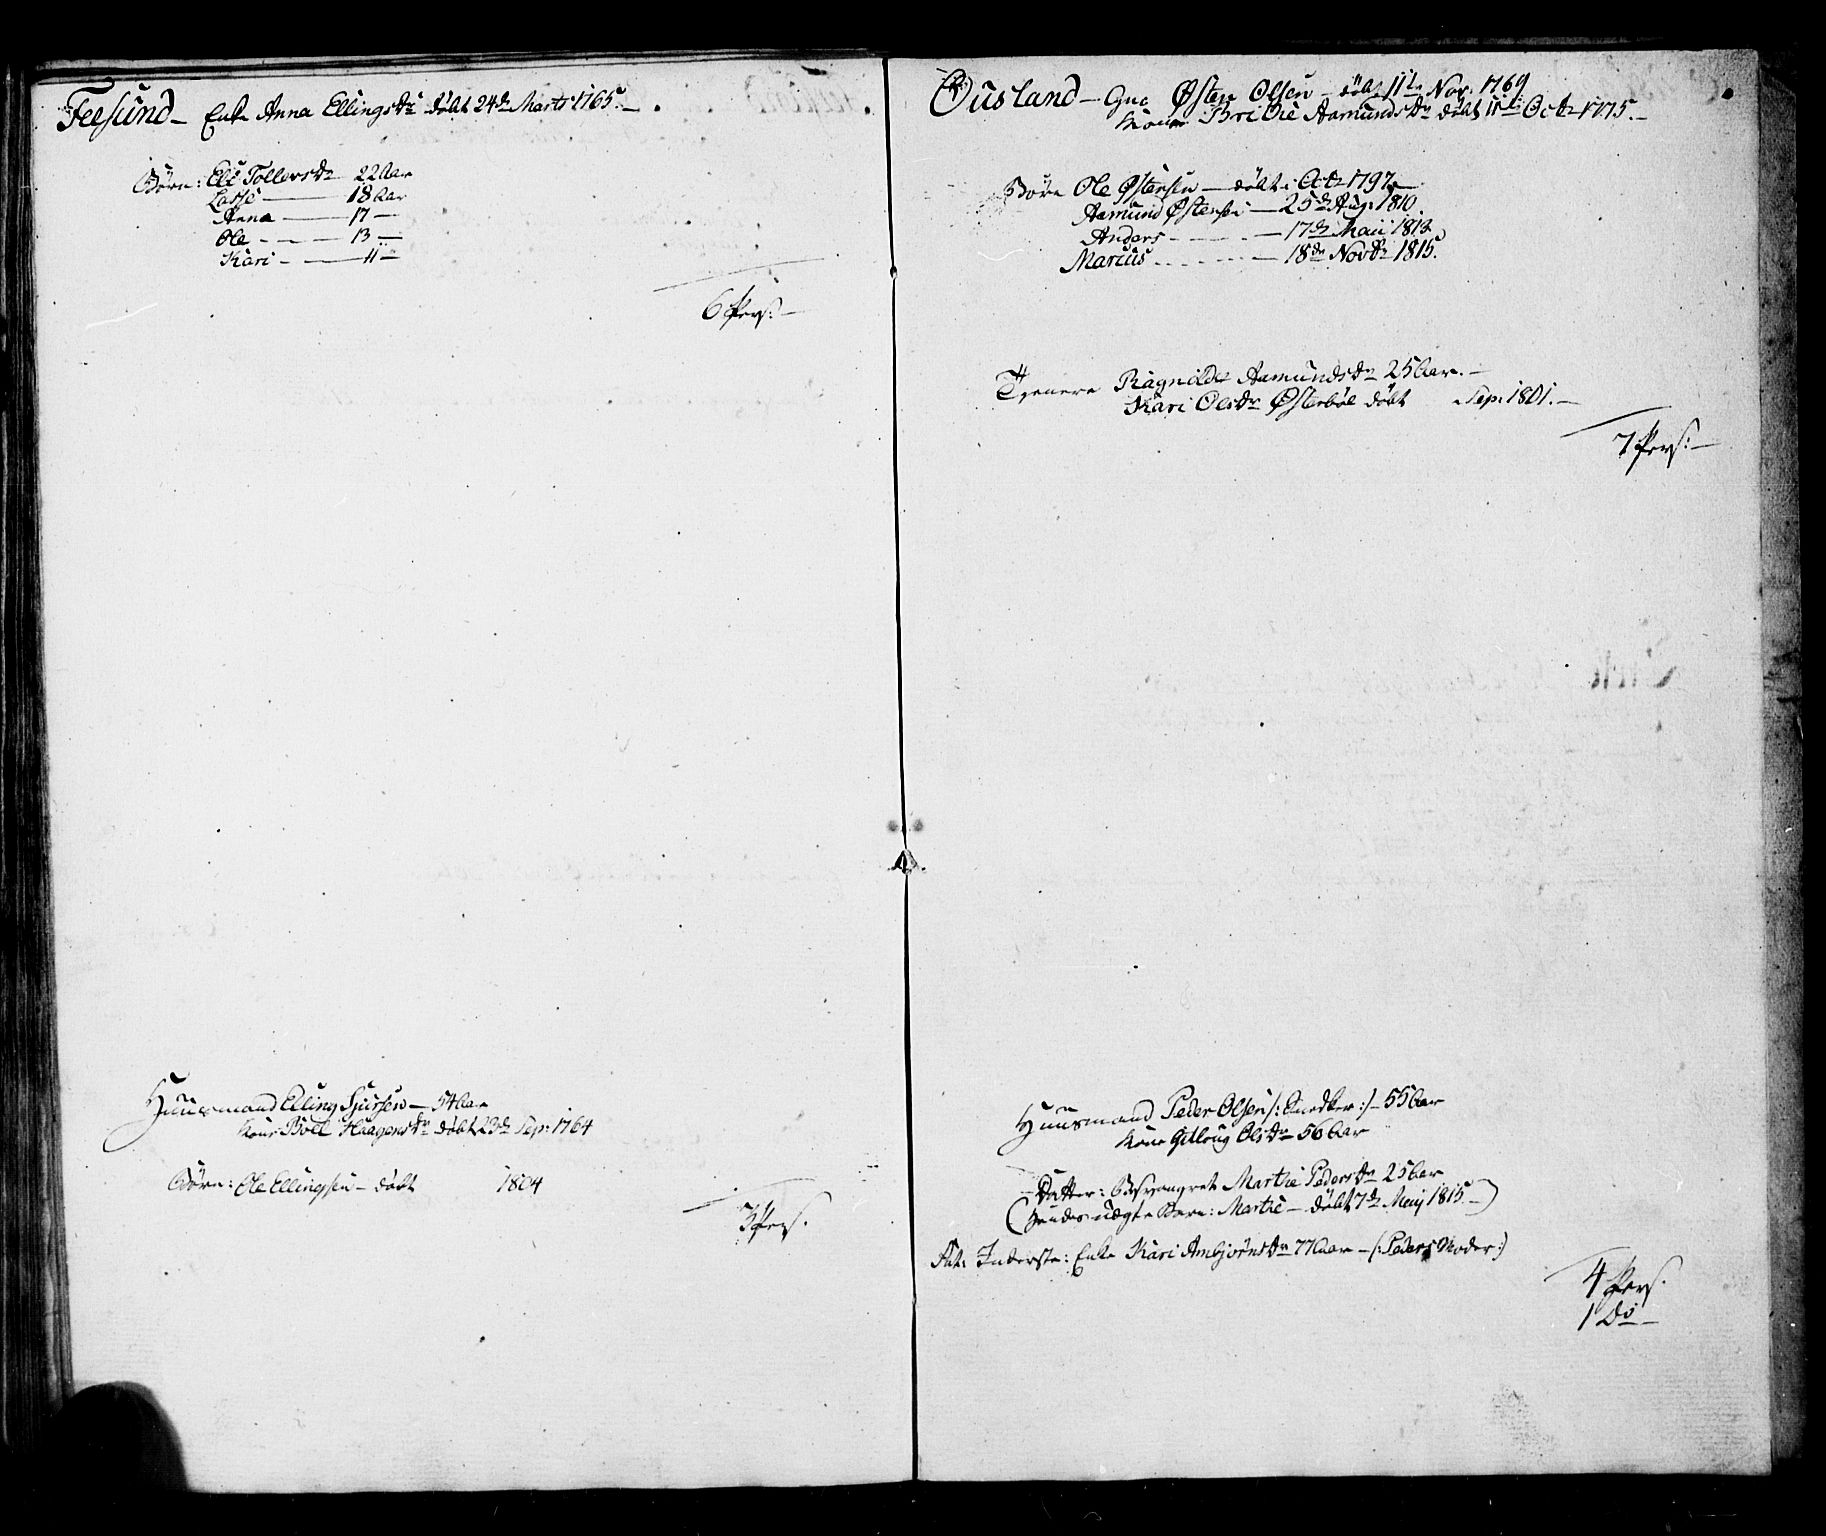 Feesund – Enke Anna Ellingsdr døbt 24de Marts 1765. –
Börn: Eli Tollevsdr 22 Aar
Lasse — 18 Aar
Anna — 17 —
Ole — 13 —
Kari — 11 —
6 Pers: –
Huusmand Elling Sjursen – 54 Aar
Kone Boel Haagensdr døbt 23de Sep: 1764
Börn: Ole Ellingsen – døbt 1804
3 Pers.
Ousland – Gmd Østen Olsen – döbt 11te Nov. 1769
Kone Brithe Aamundsdr døbt 11te Octr 1775. –
Börn Ole Østensen — døbt i Octr 1797 —
Aamund Østensen — 25de Aug. 1810
Anders — 17de Maii 1813
Marcus — 18de Novbr 1815.
Tjenere Ragnilde Aamundsdr 25 Aar. –
Kari Olsdr Østebøe døbt Sep: 1801. –
7 Pers: –
Huusmand Peder Olsen /: Snedker :/ – 55 Aar
Kone Gitlaug Olsdr 56 Aar
Datter: Besvangret Marthe Pedersdr 25 Aar
(hendes uægte Barn: Marthe – døbt 7de Maij 1815 –)
At: Inderste: Enke Kari Ambjörnsdr 77 Aar – (: Peders Moder :)
4 Pers.
1 Do –